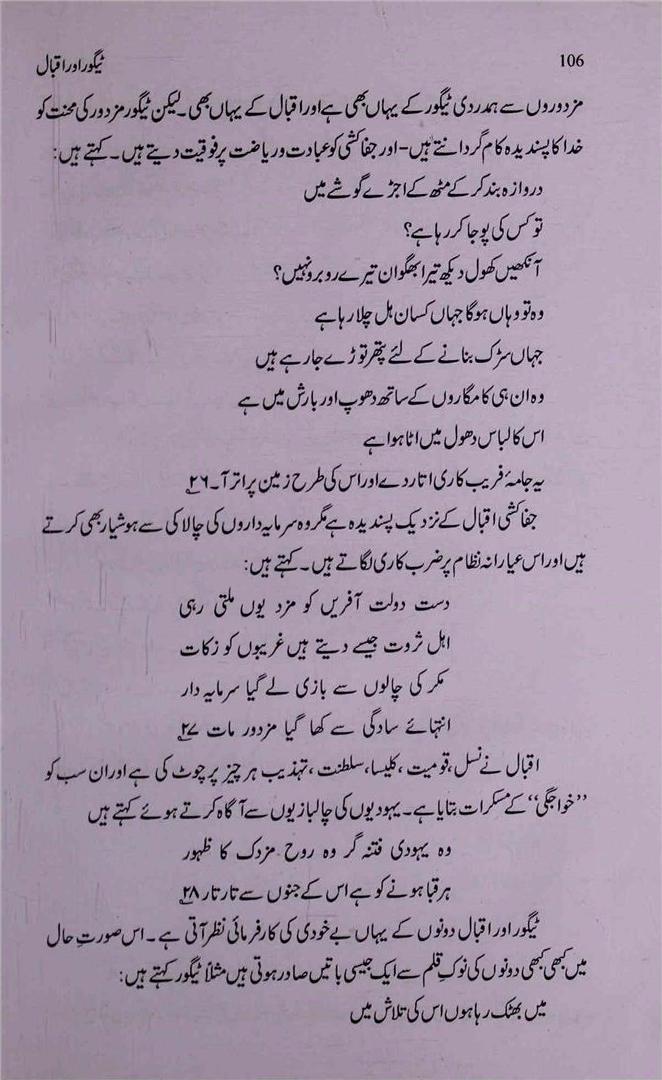 106
ٹیگور اور اقبال
مزدوروں سے ہمدردی ٹیگور کے یہاں بھی ہے اور اقبال کے یہاں بھی۔ لیکن ٹیگور مزدور کی محنت کو
خدا کا پسندیدہ کام گردانتے ہیں- اور جفاکشی کو عبادت و ریاضت پر فوقیت دیتے ہیں۔ کہتے ہیں:
دروازہ بند کر کے مٹھ کے اجڑے گوشے میں
تو کس کی پوجا کر رہا ہے؟
آنکھیں کھول دیکھ تیرا بھگوان تیرے روبرو نہیں؟
وہ تو وہاں ہوگا جہاں کسان ہل چلا رہا ہے
جہاں سڑک بنانے کے لئے پتھر توڑے جا رہے ہیں
وہ ان ہی کامگاروں کے ساتھ دھوپ اور بارش میں ہے
اس کا لباس دھول میں اٹا ہوا ہے
یہ جامۂ فریب کاری اتار دے اور اس کی طرح زمین پر اتر آ۔ ۲۶
جفاکشی اقبال کے نزدیک پسندیدہ ہے مگر وہ سرمایہ داروں کی چالاکی سے ہوشیار بھی کرتے
ہیں اور اس عیارانہ نظام پر ضرب کاری لگاتے ہیں۔ کہتے ہیں:
دست دولت آفریں کو مزد یوں ملتی رہی
اہل ثروت جیسے دیتے ہیں غریبوں کو زکات
مکر کی چالوں سے بازی لے گیا سرمایہ دار
انتہائے سادگی سے کھا گیا مزدور مات ۲۷
اقبال نے نسل، قومیت، کلیسا، سلطنت، تہذیب ہر چیز پر چوٹ کی ہے اور ان سب کو
”خواجگی“ کے مسکرات بتایا ہے۔ یہودیوں کی چالبازیوں سے آگاہ کرتے ہوئے کہتے ہیں
وہ یہودی فتنہ گر وہ روح مزدک کا ظہور
ہر قبا ہونے کو ہے اس کے جنوں سے تار تار ۲۸
ٹیگور اور اقبال دونوں کے یہاں بے خودی کی کارفرمائی نظر آتی ہے۔ اس صورتِ حال
میں کبھی کبھی دونوں کی نوکِ قلم سے ایک جیسی باتیں صادر ہوتی ہیں مثلاً ٹیگور کہتے ہیں:
میں بھٹک رہا ہوں اس کی تلاش میں